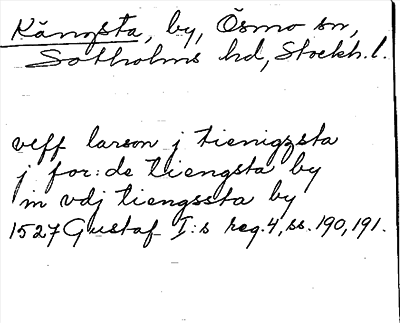 Kängsta, by, Ösmo sn,
Sotholms hd, Stockh. l.
veff larson j tienigzsta
j for: de tiengsta by
in vdj tiengssta by
1527 Gustaf I:s reg. 4, ss. 190, 191.